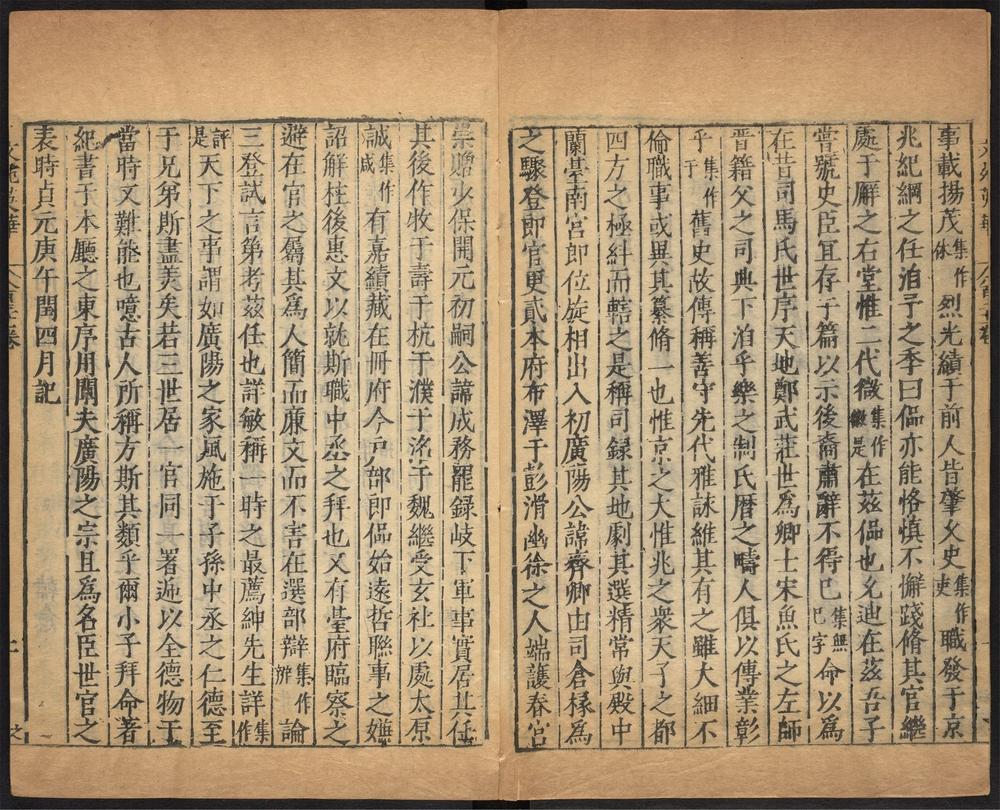 事載揚茂集作休烈光績于前人皆肇父史集作吏職發于京
兆紀綱之任洎子之季曰偘亦能恪慎不懈踐脩其官繼
處于廨之右堂惟二代徽集作徽是在茲偘也允迪在茲吾子
嘗號史臣宜存于篇以示後裔肅辭不得已集無已字命以為
在昔司馬氏世序天地鄭武莊世為卿士宋魚氏之左師
晉籍父之司典下洎乎樂之制氏曆之疇人俱以傳業彰
乎集作于舊史故傳稱善守先代雅詠維其有之雖大細不
倫職事或異其纂脩一也惟京之大惟兆之衆天子之都
四方之極糾而轄之是稱司録其地劇其選精常與殿中
蘭臺南宮郎位旋相出入初廣陽公諱齊卿由司倉掾為
之驟登郎官更貳本府布澤于彭滑幽徐之人端護春宮
崇贈少保開元初嗣公諱成務罷録岐下軍事實居其任
其後作牧于壽于杭于濮于洺于魏繼受玄社以處太原
誠集作咸有嘉績藏在冊府今戸部郎偘始遠哲聯事之嫌
詔解柱後惠文以就斯職中丞之拜也又有臺府臨察之
避在官之屬其為人簡而廉文而不害在選部辯集作辨論
三登試言第考茲任也詳敏稱一時之最薦紳先生詳集作
評是天下之事謂如廣陽之家風施于子孫中丞之仁德至
于兄弟斯盡美矣若三世居一官同一署遞以全德物于
當時又難能也噫古人所稱方斯其類乎爾小子拜命著
紀書于本廳之東序用闡夫廣陽之宗且為名臣世官之
表時貞元庚午閏四月記